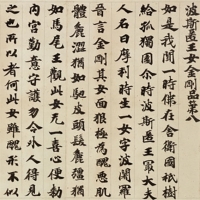 波斯匿王女金剛品第八
如是我聞一時佛在舍衛國祇樹
給孤獨園尒時波斯匿王最大夫
人名曰摩利時生一女字波闍羅
晉言金剛其女面狠極為醜惡肌
體麁澀猶如駝皮頭髮麁強猶
如馬尾王觀此女无一喜心便勑
內宮勤意守護勿令外人得見
之也所以者何此女雖醜形不似